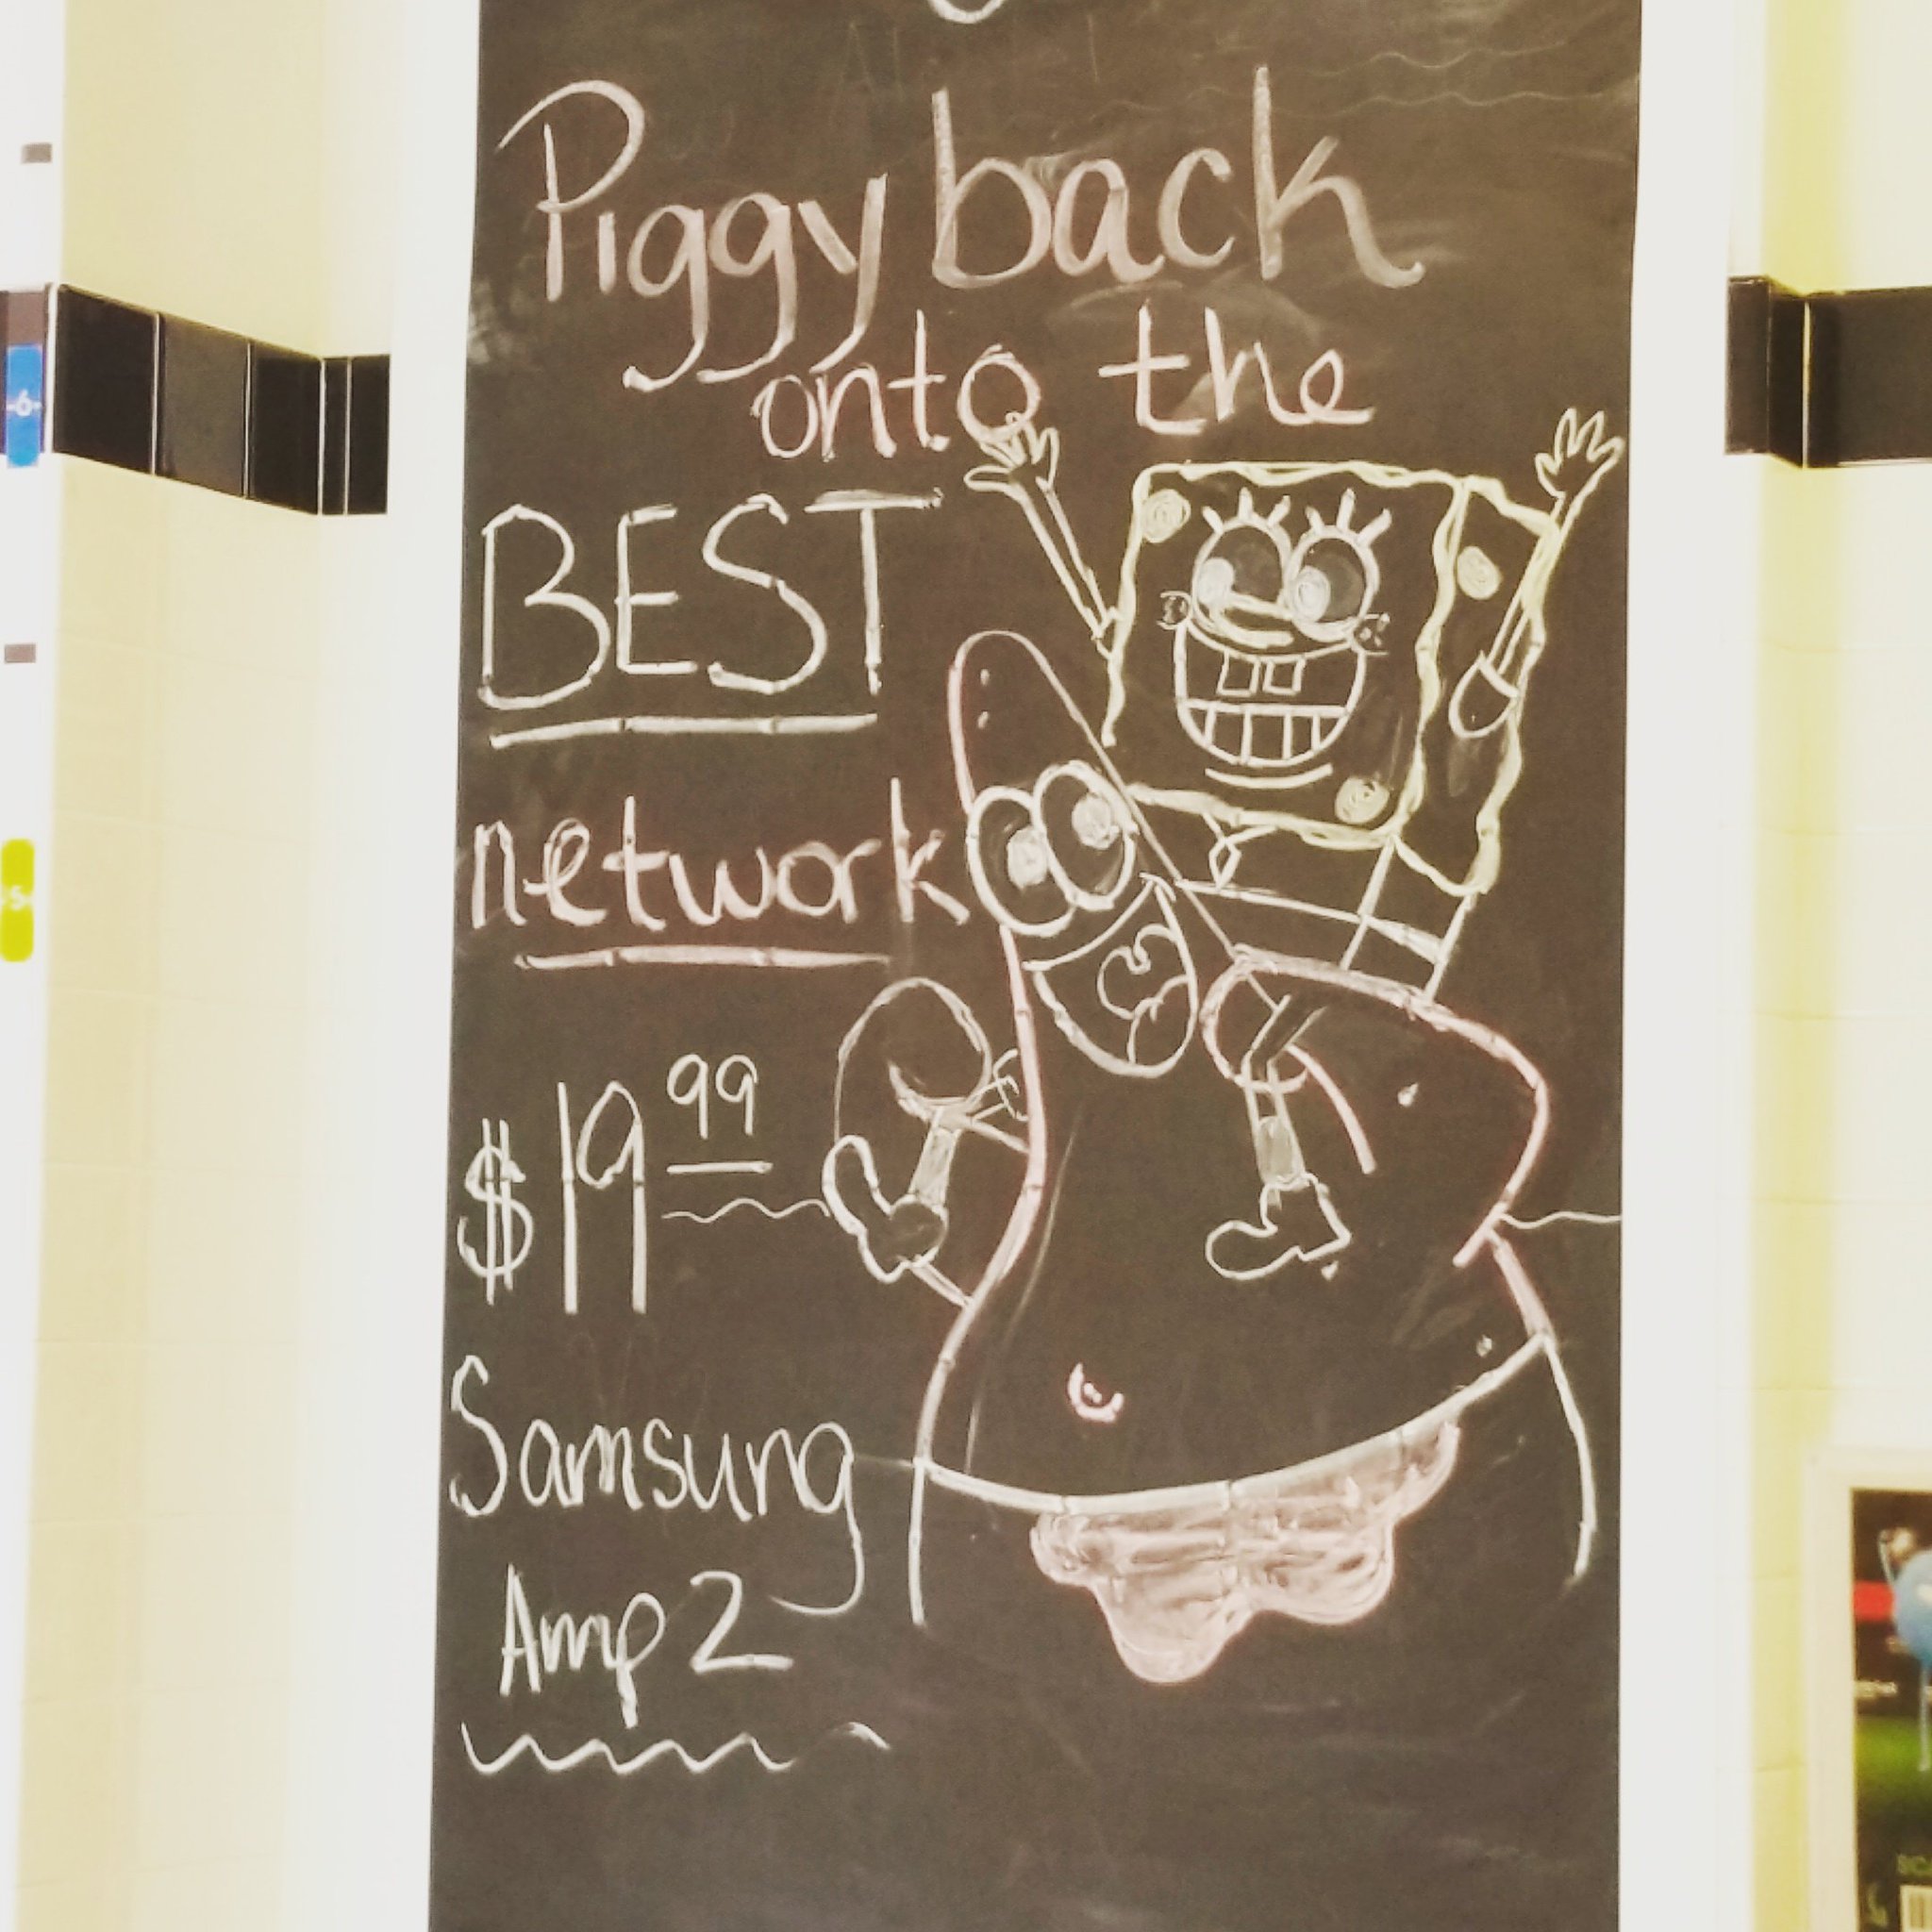 Piggyback
onto the
BEST
network
$19 99
Samsung
Amp 2
-6-
-5-